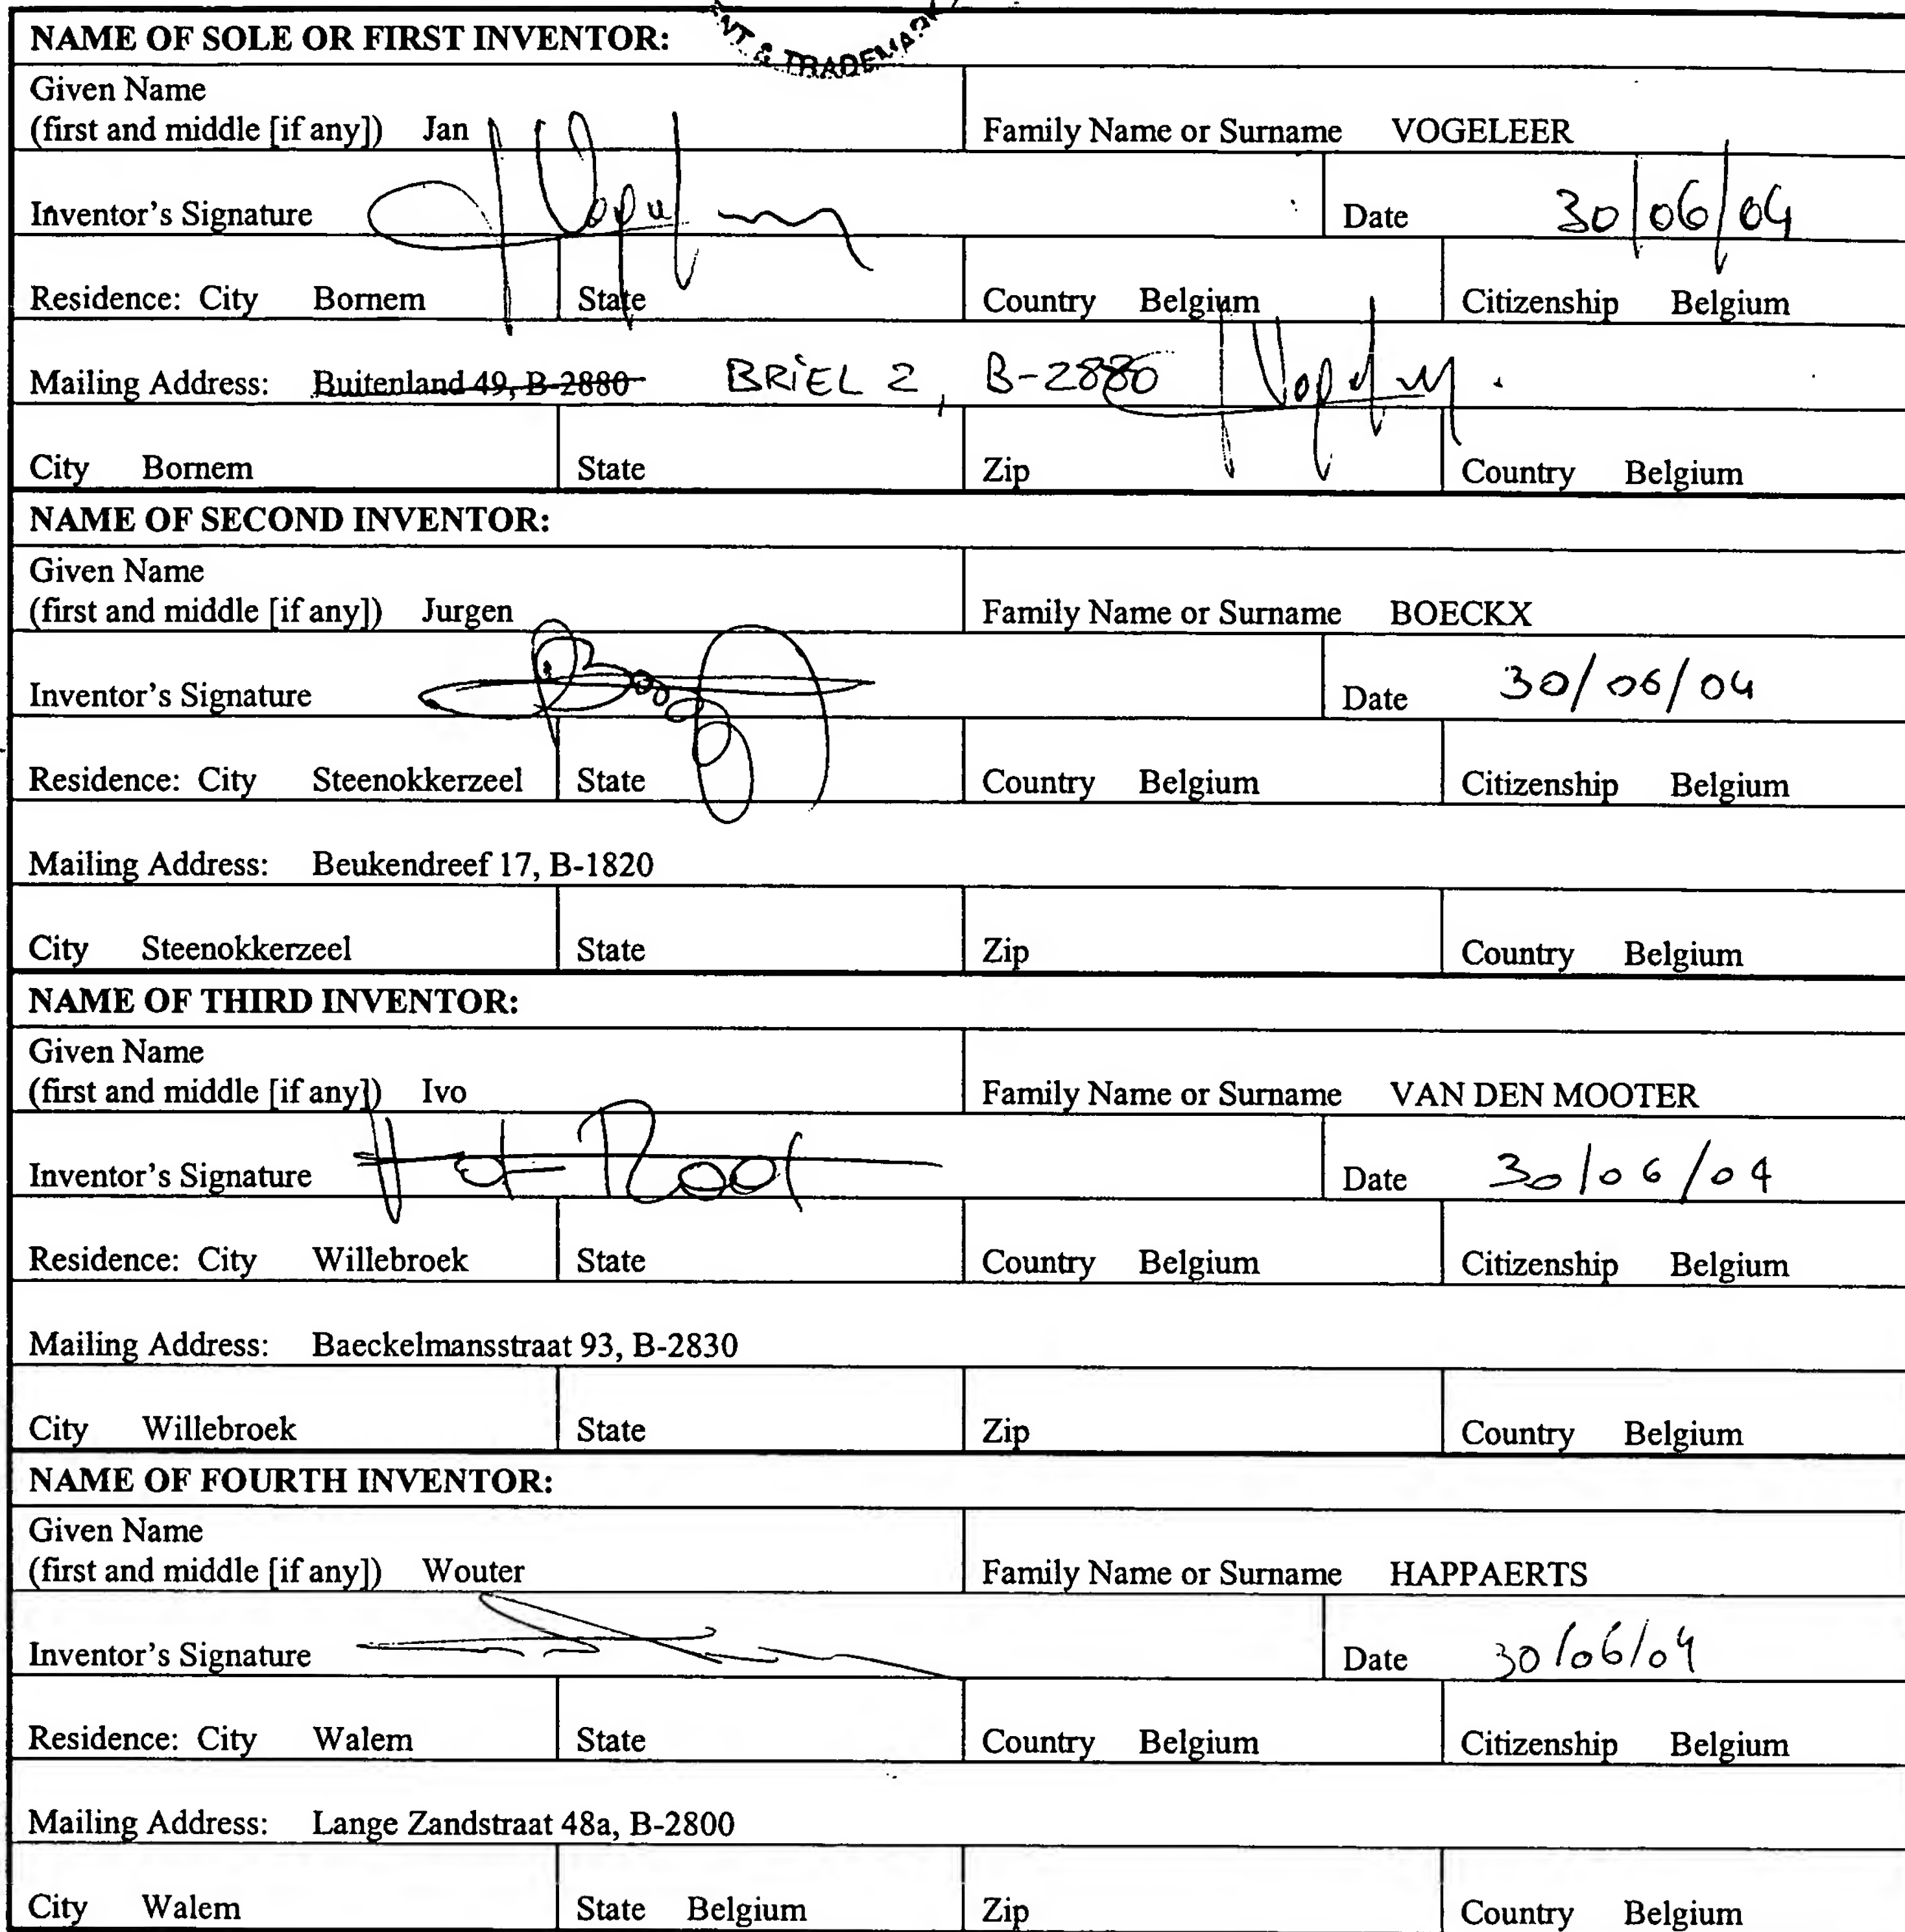 NT & TRADEMARK
NAME OF SOLE OR FIRST INVENTOR:
Given Name
(first and middle [if any]) Jan Family Name or Surname VOGELEER
Inventor's Signature Date 30/06/04
Residence: City Bornem State Country Belgium Citizenship Belgium
Mailing Address: Buitenland 49, B-2880 BRIEL 2, B-2880
City Bornem State Zip Country Belgium
NAME OF SECOND INVENTOR:
Given Name
(first and middle [if any]) Jurgen Family Name or Surname BOECKX
Inventor's Signature Date 30/06/04
Residence: City Steenokkerzeel State Country Belgium Citizenship Belgium
Mailing Address: Beukendreef 17, B-1820
City Steenokkerzeel State Zip Country Belgium
NAME OF THIRD INVENTOR:
Given Name
(first and middle [if any]) Ivo Family Name or Surname VAN DEN MOOTER
Inventor's Signature Date 30/06/04
Residence: City Willebroek State Country Belgium Citizenship Belgium
Mailing Address: Baeckelmansstraat 93, B-2830
City Willebroek State Zip Country Belgium
NAME OF FOURTH INVENTOR:
Given Name
(first and middle [if any]) Wouter Family Name or Surname HAPPAERTS
Inventor's Signature Date 30/06/04
Residence: City Walem State Country Belgium Citizenship Belgium
Mailing Address: Lange Zandstraat 48a, B-2800
City Walem State Belgium Zip Country Belgium